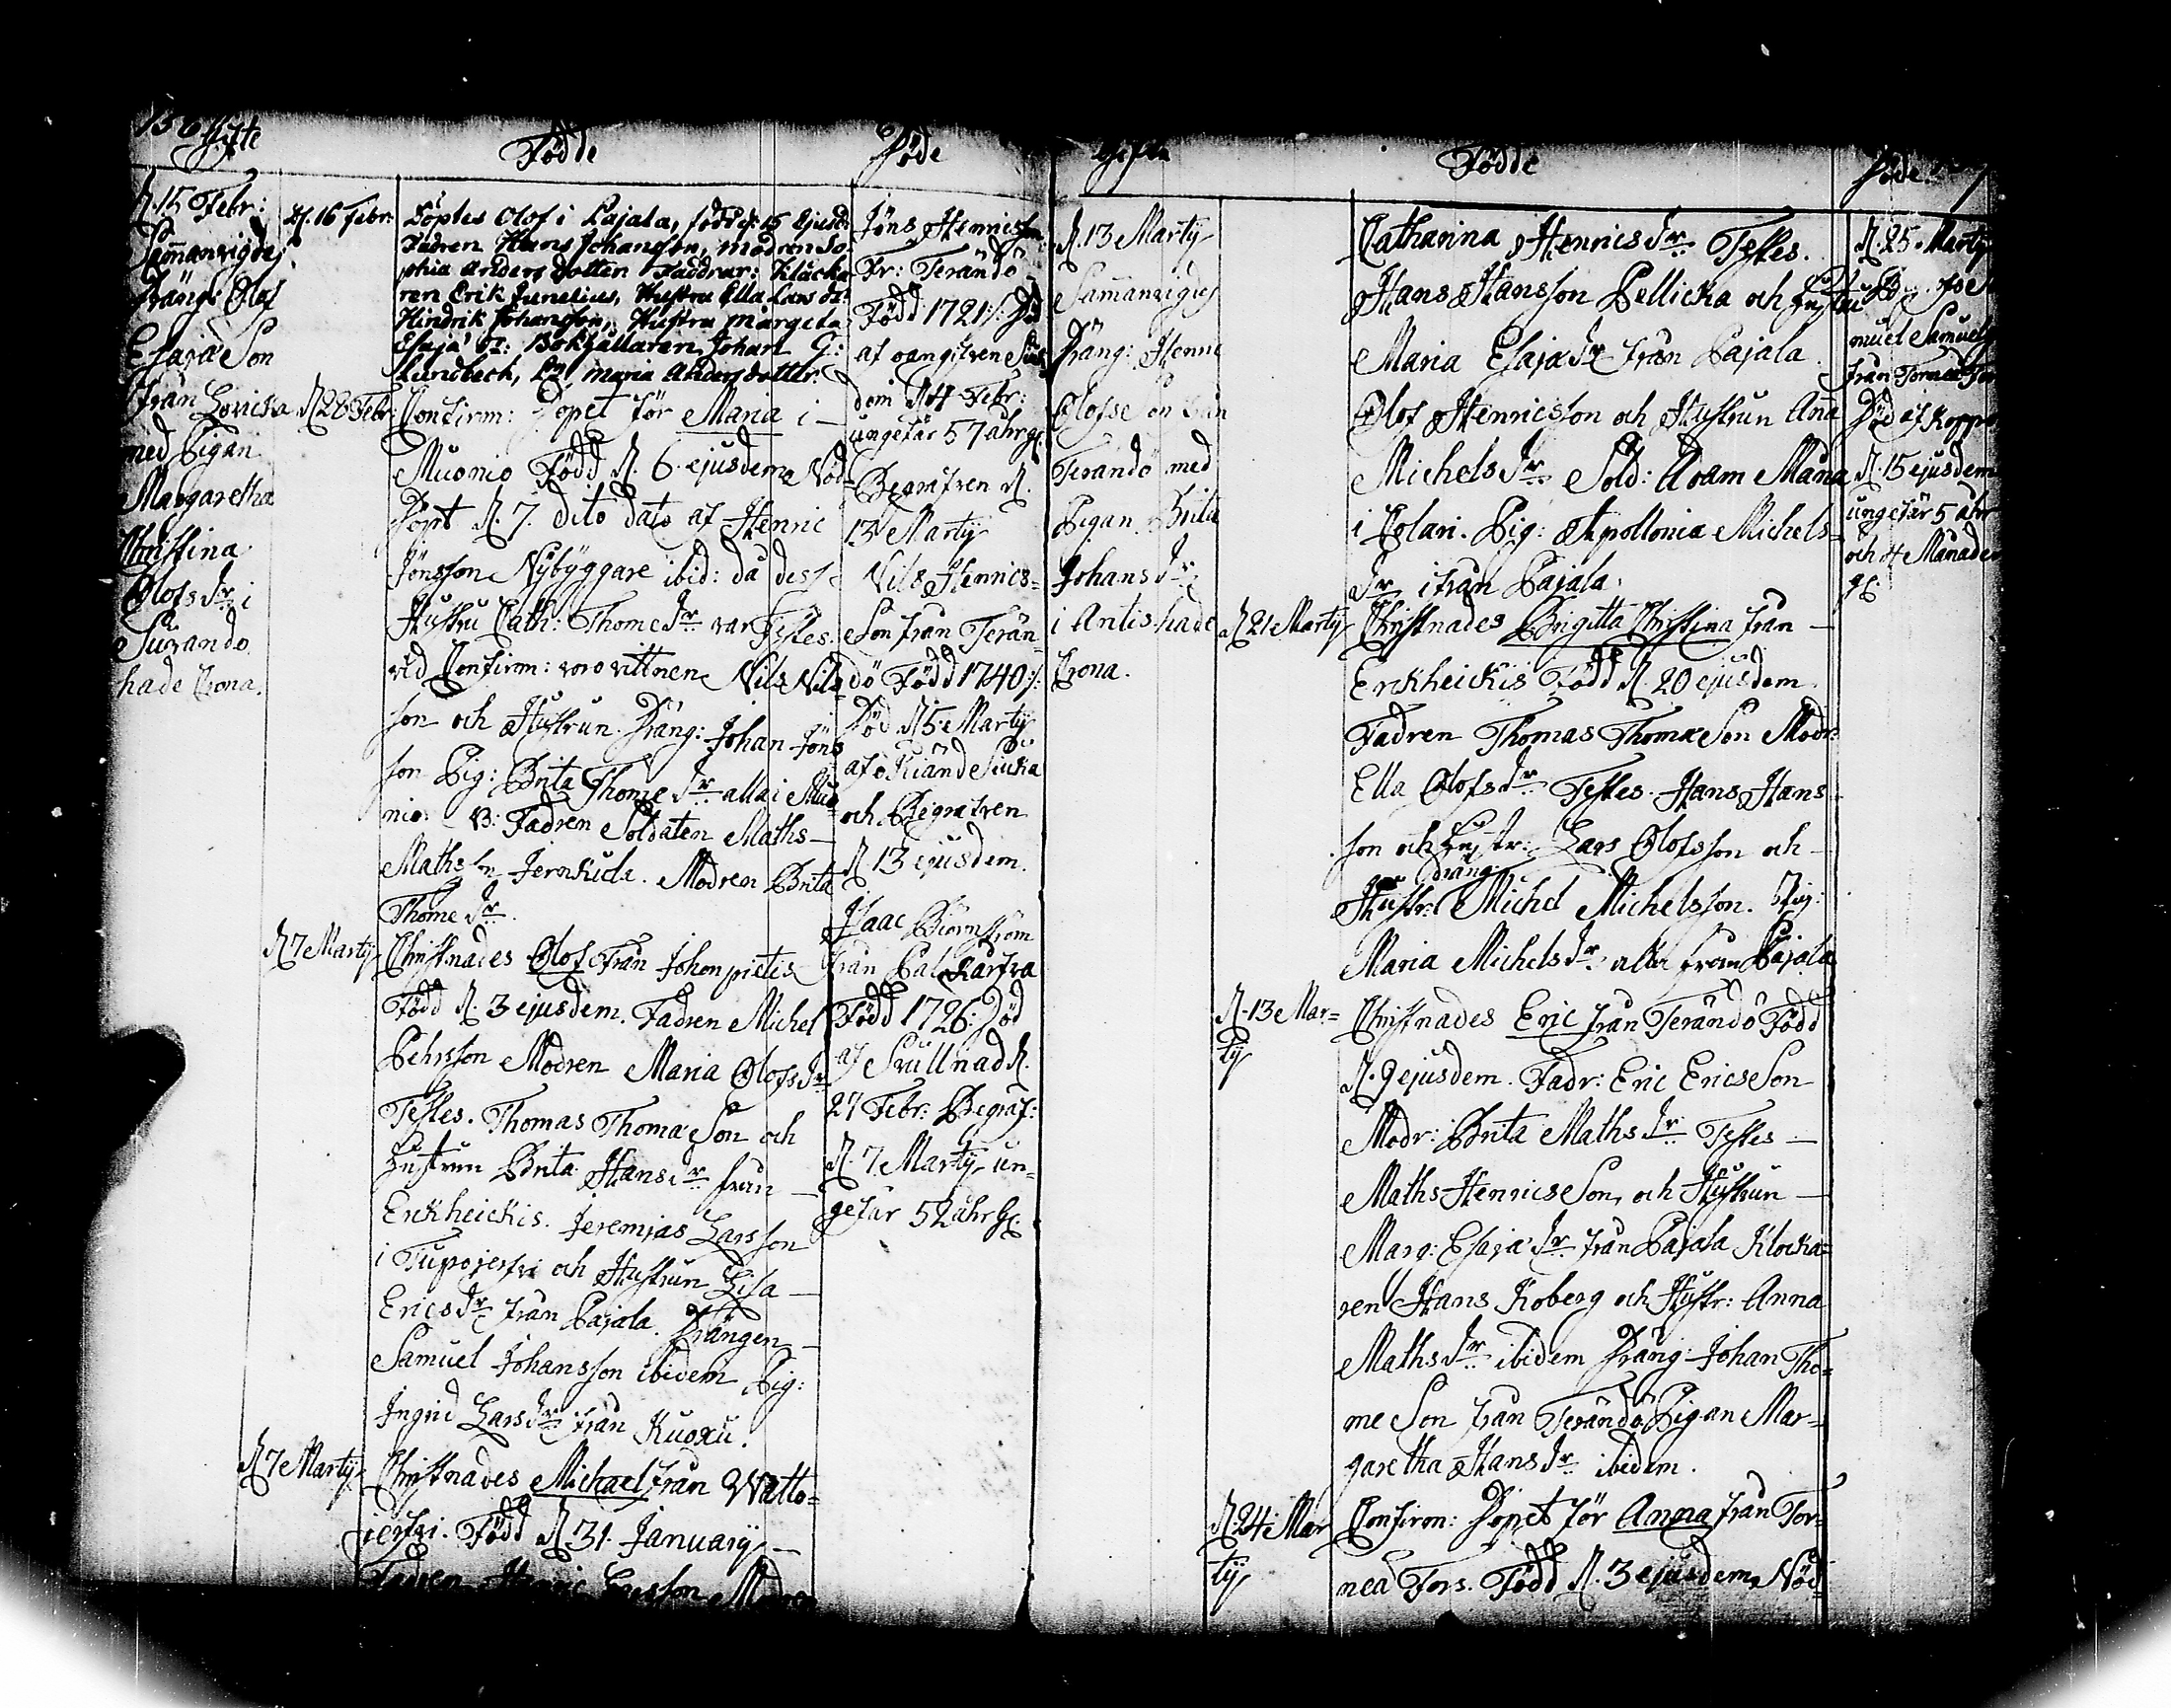 136 Gifte
Födde
Döde
d. 15 Febr:
Sammanvigdes
Dräng: Olof
Esajæ Son
från Lovicka
med Pigan
Margaretha
Christina
Olofs dr i
hade Crona.
d. 16 Febr:
Döptes Olof i Pajala, född d: 15 Ejusd:
Fadren Hans Johansson, modren So-
phia Anders dotter Faddrar: Klåcka-
ren Erik Junelius, Hustru Ella Lars do:
Hindrik Johansson, Hustru Margeta
Esajæ D: Bokhållaren Johan G:
Lundbeck, Maria Andersdotter.
d 28 Febr:
Confirm: Dopet för Maria i
Muonio Född d. 6. ejusdem Nöd-
döpt d. 7. dito dato af Henric
Jönsson Nybyggare ibid: då dess
Hustru Cath: Thome dr var Testes
vid Confirm: voro vittnen Nils Nils
son och Hustrun Dräng: Johan Jöns
son Pig: Brita Thome dr alla i Muo-
nio. NB: Fadren Soldaten Maths
Mathsson Jernkula. Modren Brita
Thome dr.
d 7 Martij
Christnades Olof från Johonpietis
Född d. 3 ejusdem. Fadren Michel
Pehrsson Modren Maria Olofs dr
Testes. Thomas Thomæ Son och
Hustrun Brita Hans dr från
Erckheickis. Jeremias Larsson
i Tupojerfvi och Hustrun Lisa
Erics dr från Pajala. Drängen
Samuel Johansson ibidem Pig:
Ingrid Lars dr från Kuoxu.
d 7 Martij
Christnades Michael från Watto-
jerfvi. Född d 31. Januarij
Fadren Henric Ersson Modren
Jöns Henricsson
Fr: Terändö
Född 1721 /: Död
af
den d 4 Febr:
ungefär 57 åhr gl.
Begrafven d.
13 Martij
Nils Henrics-
Son från Terän-
dö Född 1740 /:
Död d 5 Martij
af okiänd Siuka
och Begrafven
d 13 ejusdem.
Isaac Biörnström
från Palokårfva
Född 1726: Död
af Svullnad d.
27 Febr: Begraf:
d. 7 Martij un-
gefär 52 åhr gl.
Gifte
Födde
Döde
d. 13 Martij
Sammanvigdes
Dräng: Henric
Olofsson från
Terändö med
Pigan Brita
Johans dr
i Antis. hade
Crona.
Catharina Henrics dr Testes.
Hans Hansson Pellicka och Hustru
Maria Esajæ dr från Pajala.
Olof Henricsson och Hustrun Anna
Michels dr. Sold: Adam Mana
i Colari. Pig: Apollonia Michels-
dr ifrån Pajala.
d 21 Martij
Christnades Brigitta Christina från
Erckheickis Född d. 20 ejusdem
Fadren Thomas Thomæ Son Modr:
Ella Olofs dr Testes. Hans Hans-
son och Hustr: Lars Olofsson och
dräng
Hustr: Michel Michelsson. Pig:
Maria Michels dr alla från Pajala
d. 13 Mar-
tij
Christnades Eric från Terändö Född
d. 9 ejusdem. Fadr: Eric Erics Son
Modr: Brita Maths dr Testes
Maths Henrics Son, och Hustrun
Marg: Esajæ dr från Pajala Klocka-
ren Hans Koberg och Hustr: Anna
Maths dr ibidem Dräng: Johan Tho-
me Son från Terändö Pigan Mar-
garetha Hans dr ibidem.
d. 24 Mar
tij
Confirm: Dopet för Anna från Tor-
neå Fors. Född d. 3 ejusdem, Nöd-
d. 25 Martij
muel Samuels
från Torneå Fors
Död af Koppor
d. 15 ejusdem
ungefär 5 åhr
och 4 Månader
gl.